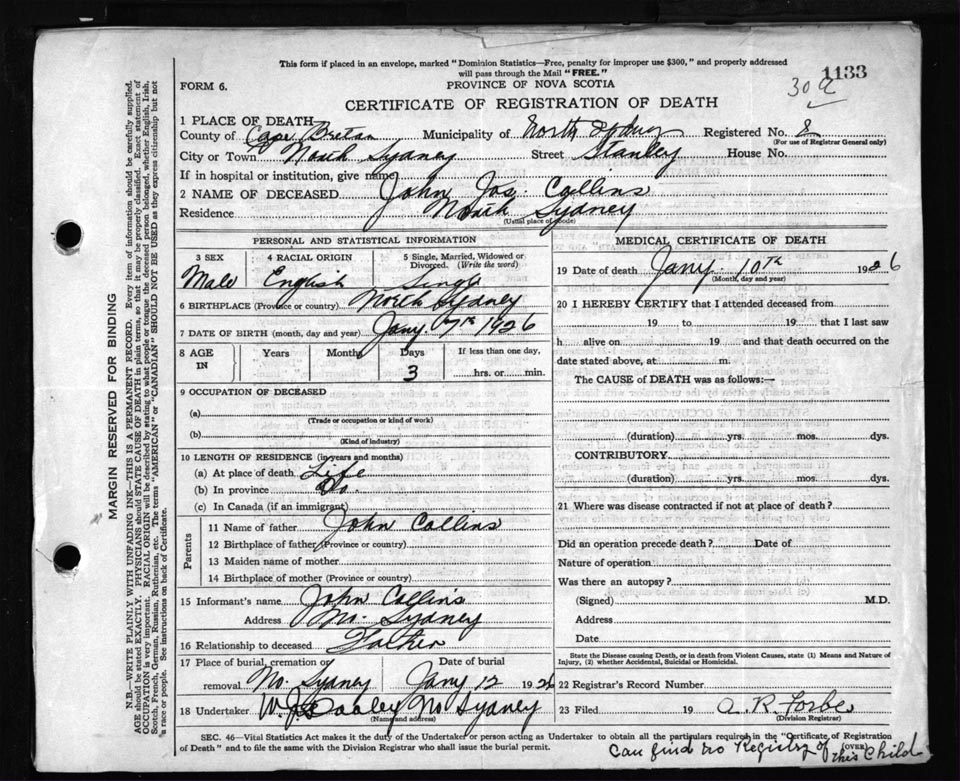 This form if placed in an envelope, marked "Dominion Statistics—Free, penalty for improper use $300," and properly addressed
will pass through the Mail "FREE."
1133
30a
FORM 6.
PROVINCE OF NOVA SCOTIA
CERTIFICATE OF REGISTRATION OF DEATH
1 PLACE OF DEATH
County of Cape Breton Municipality of North Sydney Registered No. 8
(For use of Registrar General only)
City or Town North Sydney Street Stanley House No.
If in hospital or institution, give name
2 NAME OF DECEASED John Jos. Collins
Residence North Sydney
(Usual place of abode)
PERSONAL AND STATISTICAL INFORMATION
3 SEX 4 RACIAL ORIGIN 5 Single, Married, Widowed or
Divorced. (Write the word)
Male English Single
6 BIRTHPLACE (Province or country) North Sydney
7 DATE OF BIRTH (month, day and year) Jany 7th 1926
8 AGE IN Years Months Days If less than one day,
3 hrs. or min.
9 OCCUPATION OF DECEASED
(a)
(Trade or occupation or kind of work)
(b)
(Kind of industry)
10 LENGTH OF RESIDENCE (in years and months)
(a) At place of death Life
(b) In province Do.
(c) In Canada (if an immigrant)
Parents
11 Name of father John Collins
12 Birthplace of father (Province or country)
13 Maiden name of mother
14 Birthplace of mother (Province or country)
15 Informant's name John Collins
Address No. Sydney
16 Relationship to deceased Father
17 Place of burial, cremation or Date of burial
removal No. Sydney Jany 12 1926
18 Undertaker W. J. Dooley No Sydney
(Name and address)
MEDICAL CERTIFICATE OF DEATH
19 Date of death Jany 10th 1926
(Month, day and year)
20 I HEREBY CERTIFY that I attended deceased from
19 to 19 that I last saw
h alive on 19 and that death occurred on the
date stated above, at m.
The CAUSE of DEATH was as follows:—
(duration) yrs. mos. dys.
CONTRIBUTORY
(duration) yrs. mos. dys.
21 Where was disease contracted if not at place of death?
Did an operation precede death? Date of
Nature of operation
Was there an autopsy?
(Signed) M.D.
Address
Date
State the Disease causing Death, or in death from Violent Causes, state (1) Means and Nature of
Injury, (2) whether Accidental, Suicidal or Homicidal.
22 Registrar's Record Number
23 Filed 19 A. R. Forbes
(Division Registrar)
SEC. 46—Vital Statistics Act makes it the duty of the Undertaker or person acting as Undertaker to obtain all the particulars required in the "Certificate of Registration
of Death" and to file the same with the Division Registrar who shall issue the burial permit.
(OVER)
Can find no Registry of this Child
MARGIN RESERVED FOR BINDING
N.B.—WRITE PLAINLY WITH UNFADING INK—THIS IS A PERMANENT RECORD. Every item of information should be carefully supplied.
AGE should be stated EXACTLY. PHYSICIANS should STATE CAUSE OF DEATH in plain terms, so that it may be properly classified. Exact statement of
OCCUPATION is very important. RACIAL ORIGIN will be described by stating to what people or tongue the deceased person belonged, whether English, Irish,
Scotch, French, German, Russian, Ruthenian, etc. The terms "AMERICAN" or "CANADIAN" SHOULD NOT BE USED as they express citizenship but not
a race or people. See instructions on back of Certificate.